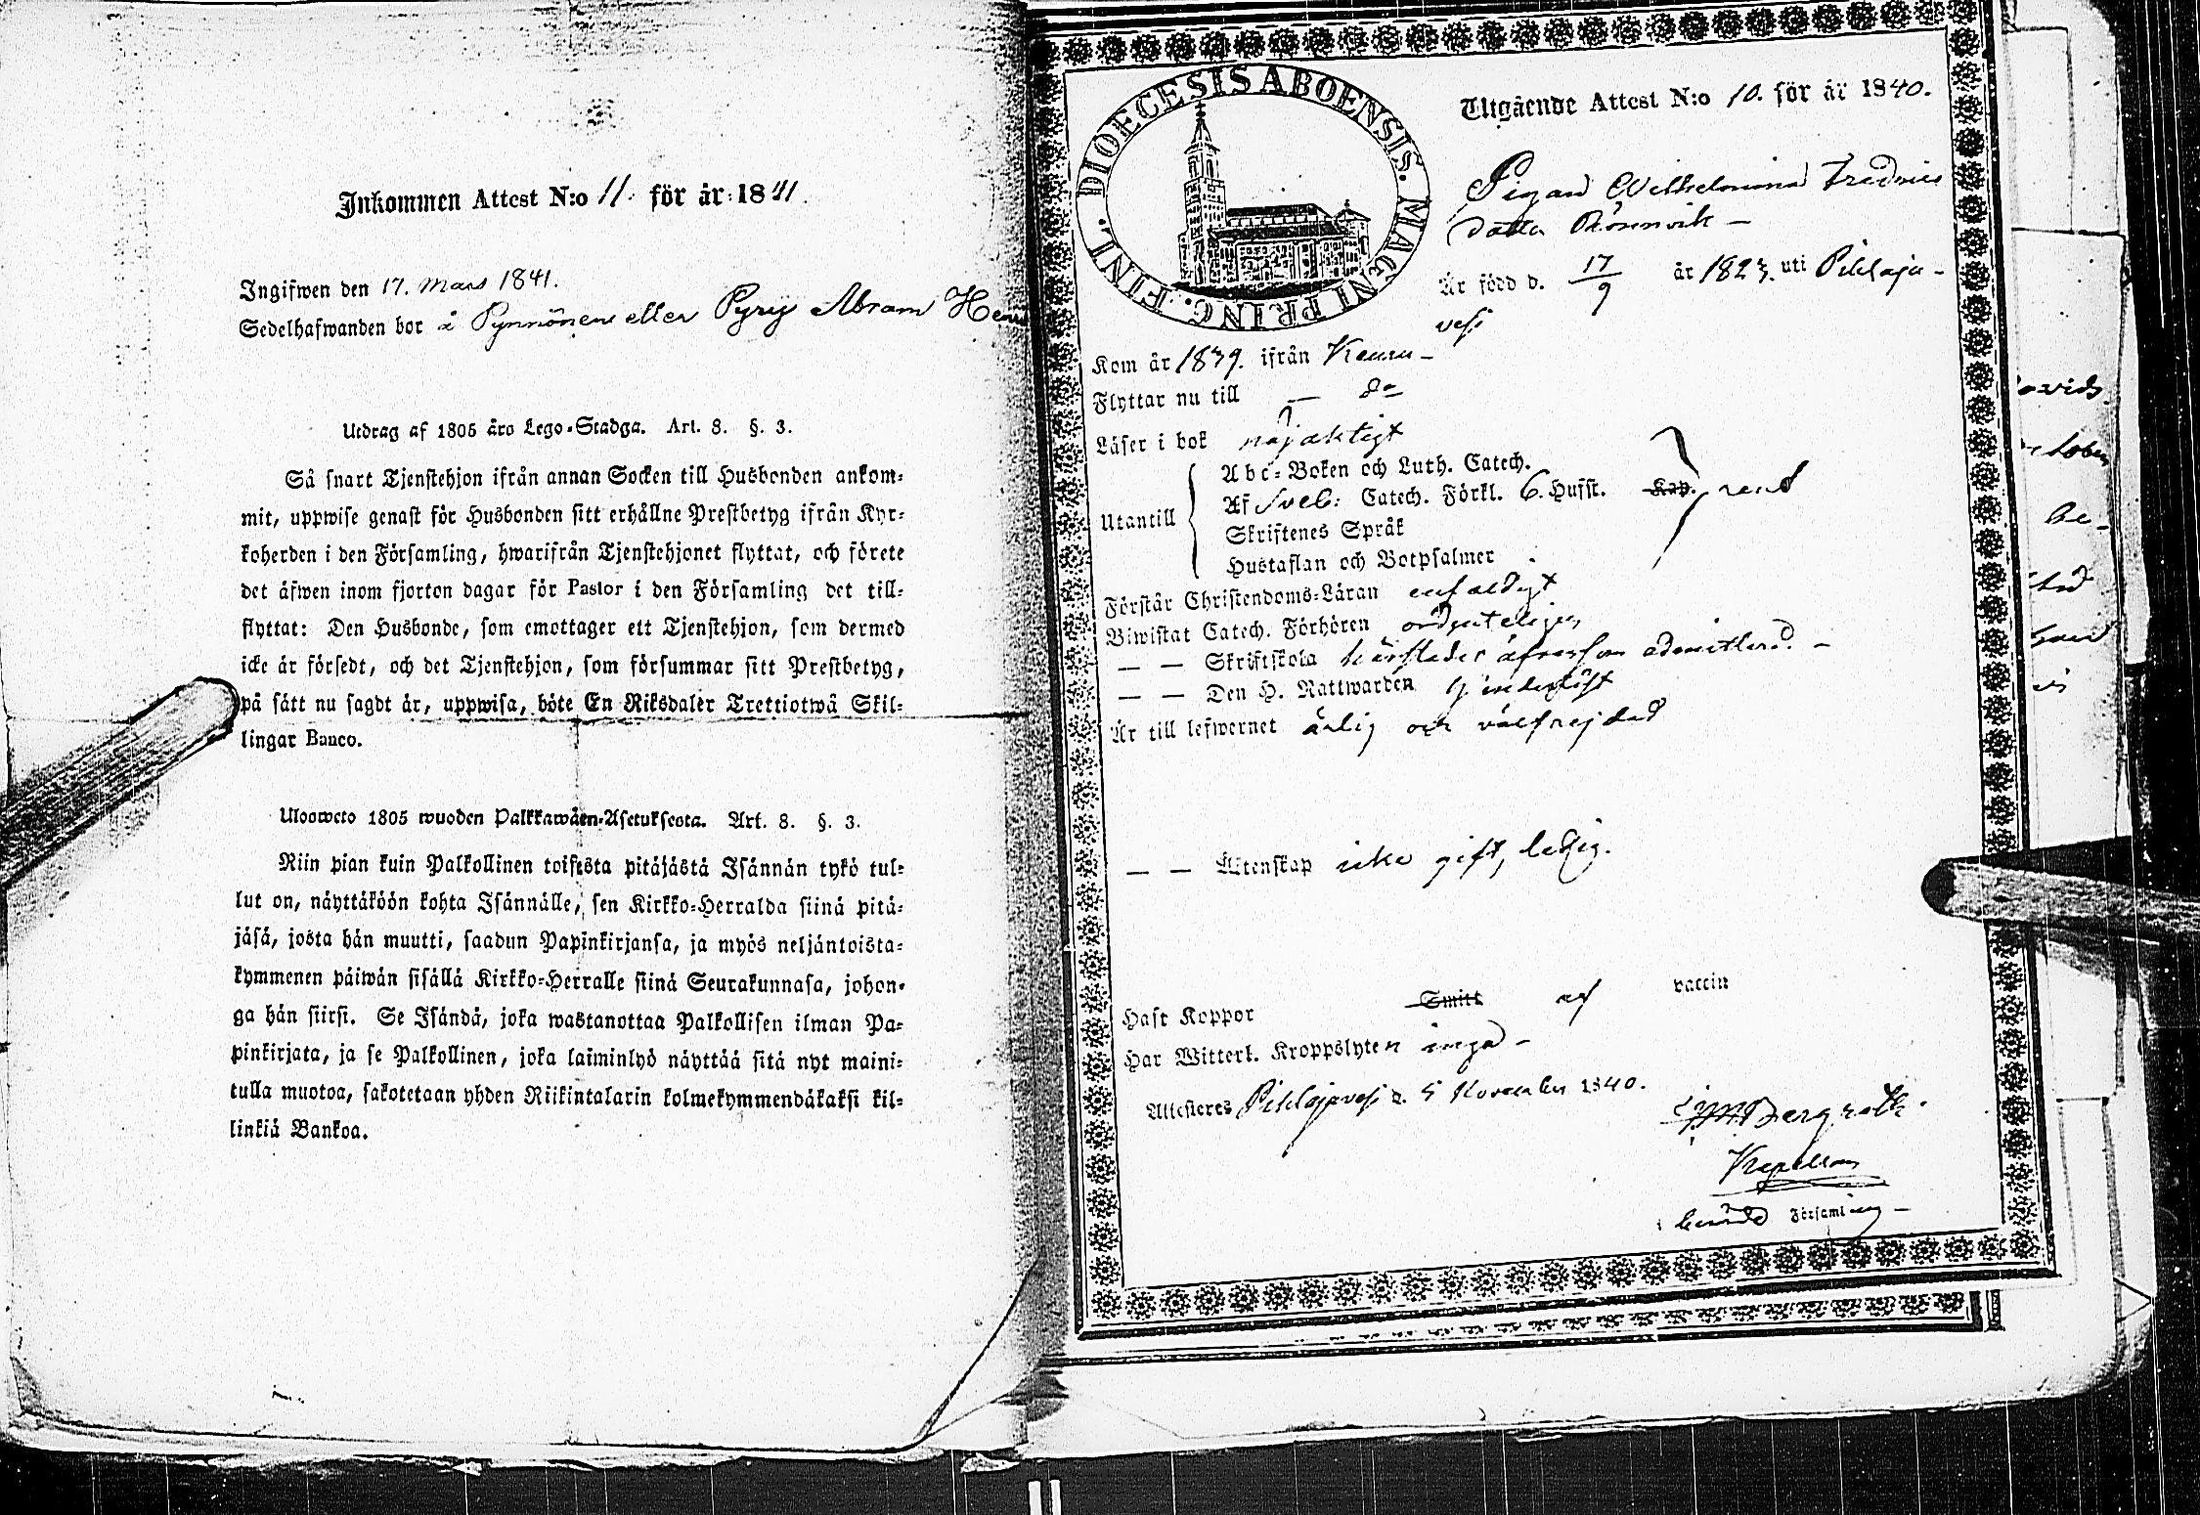 Inkommen Attest N:o 11. för år 1841.
Ingifwen den 17. Mars 1841.
Sedelhafwanden bor å Pynnönen eller Pyryi Abram
Utdrag af 1805 års Lego-Stadga. Art. 8. §. 3.
Så snart Tjenstehjon ifrån annan Socken till Husbonden ankom-
mit, uppwise genast för Husbonden sitt erhållne Prestbetyg ifrån Kyr-
koherden i den Församling, hwarifrån Tjenstehjonet flyttat, och förete
det äfwen inom fjorton dagar för Pastor i den Församling det till-
flyttat: Den Husbonde, som emottager ett Tjenstehjon, som dermed
icke är försedt, och det Tjenstehjon, som försummar sitt Prestbetyg,
på sätt nu sagdt är, uppwisa, böte En Riksdaler Trettiotwå Skil-
lingar Banco.
Uloosweto 1805 wuoden Palkkawäen-Asetuksesta. Art. 8. §. 3.
Niin pian kuin Palkollinen toisesta pitäjästä Isännän tykö tul-
lut on, näyttäköön kohta Isännälle, sen Kirkko-Herralda siinä pitä-
jäsä, josta hän muutti, saadun Papinkirjansa, ja myös neljäntoista-
kymmenen päiwän sisällä Kirkko-Herralle siinä Seurakunnasa, johon-
ga hän siirsi. Se Isändä, joka wastanottaa Palkollisen ilman Pa-
pinkirjata, ja se Palkollinen, joka laiminlyö näyttää sitä nyt maini-
tulla muotoa, sakotetaan yhden Riikintalarin kolmekymmendäkaksi kil-
linkiä Bankoa.
DIOECESIS ABOENSIS. MAGNI PRINC. FINL.
Utgående Attest N:o 10. för år 1840.
Pigan Wilhelmina Fredrics
dotter Rönnvik —
Är född d. 17/9 år 1823. uti Pihlaja-
vesi
Kom år 1839. ifrån Keuru —
Flyttar nu till — do
Läser i bok nöjaktigt
Utantill
Abc-Boken och Luth. Catech.
Af Sveb: Catech. Förkl. 6. Hufst. Kap. rent
Skriftenes Språk
Hustaflan och Botpsalmer
Förstår Christendoms-Läran enfaldigt
Biwistat Catech. Förhören ordenteligen
— — Skriftskola härstädes admitterad. —
— — Den H. Nattwarden
Är till lefwernet ärlig och välfrejdad
— — Äktenskap icke gift, ledig.
Haft Koppor Smitt af vaccin
Har Witterl. Kroppslyten inga —
Attesteras Pihlajavesi d. 5 November 1840.
Bergroth.
Kapellan
Församling —